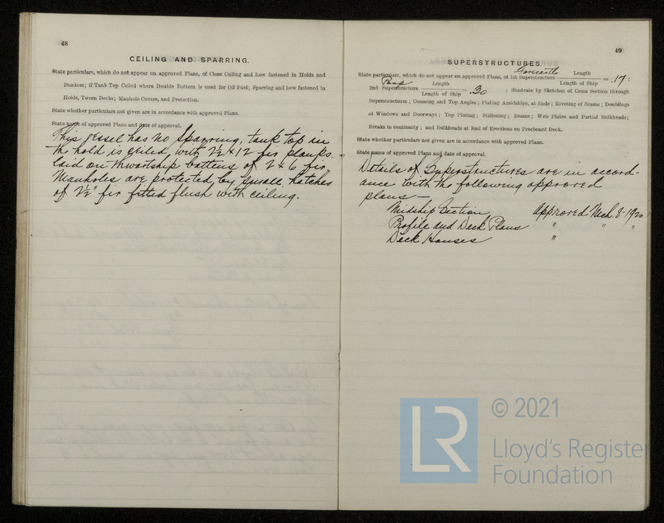 48
CEILING AND SPARRING.
State particulars, which do not appear on approved Plans, of Close Ceiling and how fastened in Holds and
Bunkers; if Tank Top Ceiled where Double Bottom is used for Oil Fuel; Sparring and how fastened in
Holds, Tween Decks; Manhole Covers, and Protection.
State whether particulars not given are in accordance with approved Plans.
State name of approved Plans and date of approval.
This vessel has no Sparring, tank top in
the hold is ceiled with 2½ x 12 fir planks
laid on thwartship battens of 2 x 6 fir
Manholes are protected by small hatches
of 2½" fir fitted flush with ceiling.
49
SUPERSTRUCTURES.
State particulars, which do not appear on approved Plans, of 1st Superstructure Forecastle Length / Length of Ship = .17 :
2nd Superstructure Poop Length / Length of Ship = .20 ; illustrate by Sketches of Cross Section through
Superstructures; Coaming and Top Angles; Plating Amidships, at Ends; Riveting of Seams; Doublings
at Windows and Doorways; Top Plating; Stiffening; Beams; Web Plates and Partial Bulkheads;
Breaks in continuity; and Bulkheads at End of Erections on Freeboard Deck.
State whether particulars not given are in accordance with approved Plans.
State name of approved Plans and date of approval.
Details of Superstructures are in accord-
ance with the following approved
plans—
Midship Section Approved Mch 8-1920
Profile and Deck Plans " " "
Deck Houses "
© 2021
LR
Lloyd's Register
Foundation